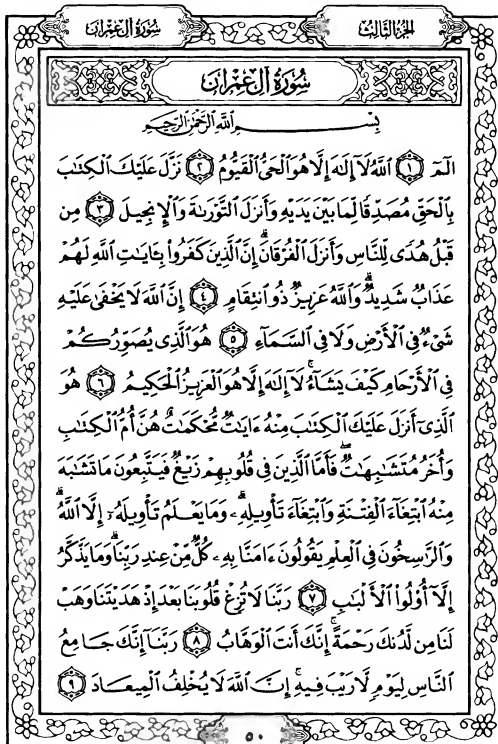 سُورَةُ آلِ عِمْرَان
الجُزْءُ الثَّالِث
سُورَةُ آلِ عِمْرَان
بِسْمِ اللَّهِ الرَّحْمَٰنِ الرَّحِيمِ
الٓمٓ ١ اللَّهُ لَآ إِلَٰهَ إِلَّا هُوَ الْحَيُّ الْقَيُّومُ ٢ نَزَّلَ عَلَيْكَ الْكِتَٰبَ
بِالْحَقِّ مُصَدِّقًا لِّمَا بَيْنَ يَدَيْهِ وَأَنزَلَ التَّوْرَىٰةَ وَالْإِنجِيلَ ٣ مِن
قَبْلُ هُدًى لِّلنَّاسِ وَأَنزَلَ الْفُرْقَانَۗ إِنَّ الَّذِينَ كَفَرُوا۟ بِـَٔايَٰتِ اللَّهِ لَهُمْ
عَذَابٌ شَدِيدٌۗ وَاللَّهُ عَزِيزٌ ذُو انتِقَامٍ ٤ إِنَّ اللَّهَ لَا يَخْفَىٰ عَلَيْهِ
شَىْءٌ فِى الْأَرْضِ وَلَا فِى السَّمَآءِ ٥ هُوَ الَّذِى يُصَوِّرُكُمْ
فِى الْأَرْحَامِ كَيْفَ يَشَآءُۚ لَآ إِلَٰهَ إِلَّا هُوَ الْعَزِيزُ الْحَكِيمُ ٦ هُوَ
الَّذِىٓ أَنزَلَ عَلَيْكَ الْكِتَٰبَ مِنْهُ ءَايَٰتٌ مُّحْكَمَٰتٌ هُنَّ أُمُّ الْكِتَٰبِ
وَأُخَرُ مُتَشَٰبِهَٰتٌۖ فَأَمَّا الَّذِينَ فِى قُلُوبِهِمْ زَيْغٌ فَيَتَّبِعُونَ مَا تَشَٰبَهَ
مِنْهُ ابْتِغَآءَ الْفِتْنَةِ وَابْتِغَآءَ تَأْوِيلِهِۦۗ وَمَا يَعْلَمُ تَأْوِيلَهُۥٓ إِلَّا اللَّهُۗ
وَالرَّٰسِخُونَ فِى الْعِلْمِ يَقُولُونَ ءَامَنَّا بِهِۦ كُلٌّ مِّنْ عِندِ رَبِّنَاۗ وَمَا يَذَّكَّرُ
إِلَّآ أُو۟لُوا۟ الْأَلْبَٰبِ ٧ رَبَّنَا لَا تُزِغْ قُلُوبَنَا بَعْدَ إِذْ هَدَيْتَنَا وَهَبْ
لَنَا مِن لَّدُنكَ رَحْمَةًۚ إِنَّكَ أَنتَ الْوَهَّابُ ٨ رَبَّنَآ إِنَّكَ جَامِعُ
النَّاسِ لِيَوْمٍ لَّا رَيْبَ فِيهِۚ إِنَّ اللَّهَ لَا يُخْلِفُ الْمِيعَادَ ٩
٥٠